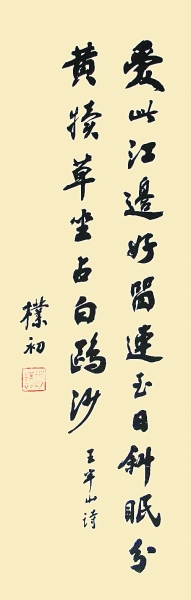 愛此江邊好留連至日斜眠分
黄犢草坐占白鷗沙
王半山诗
樸初